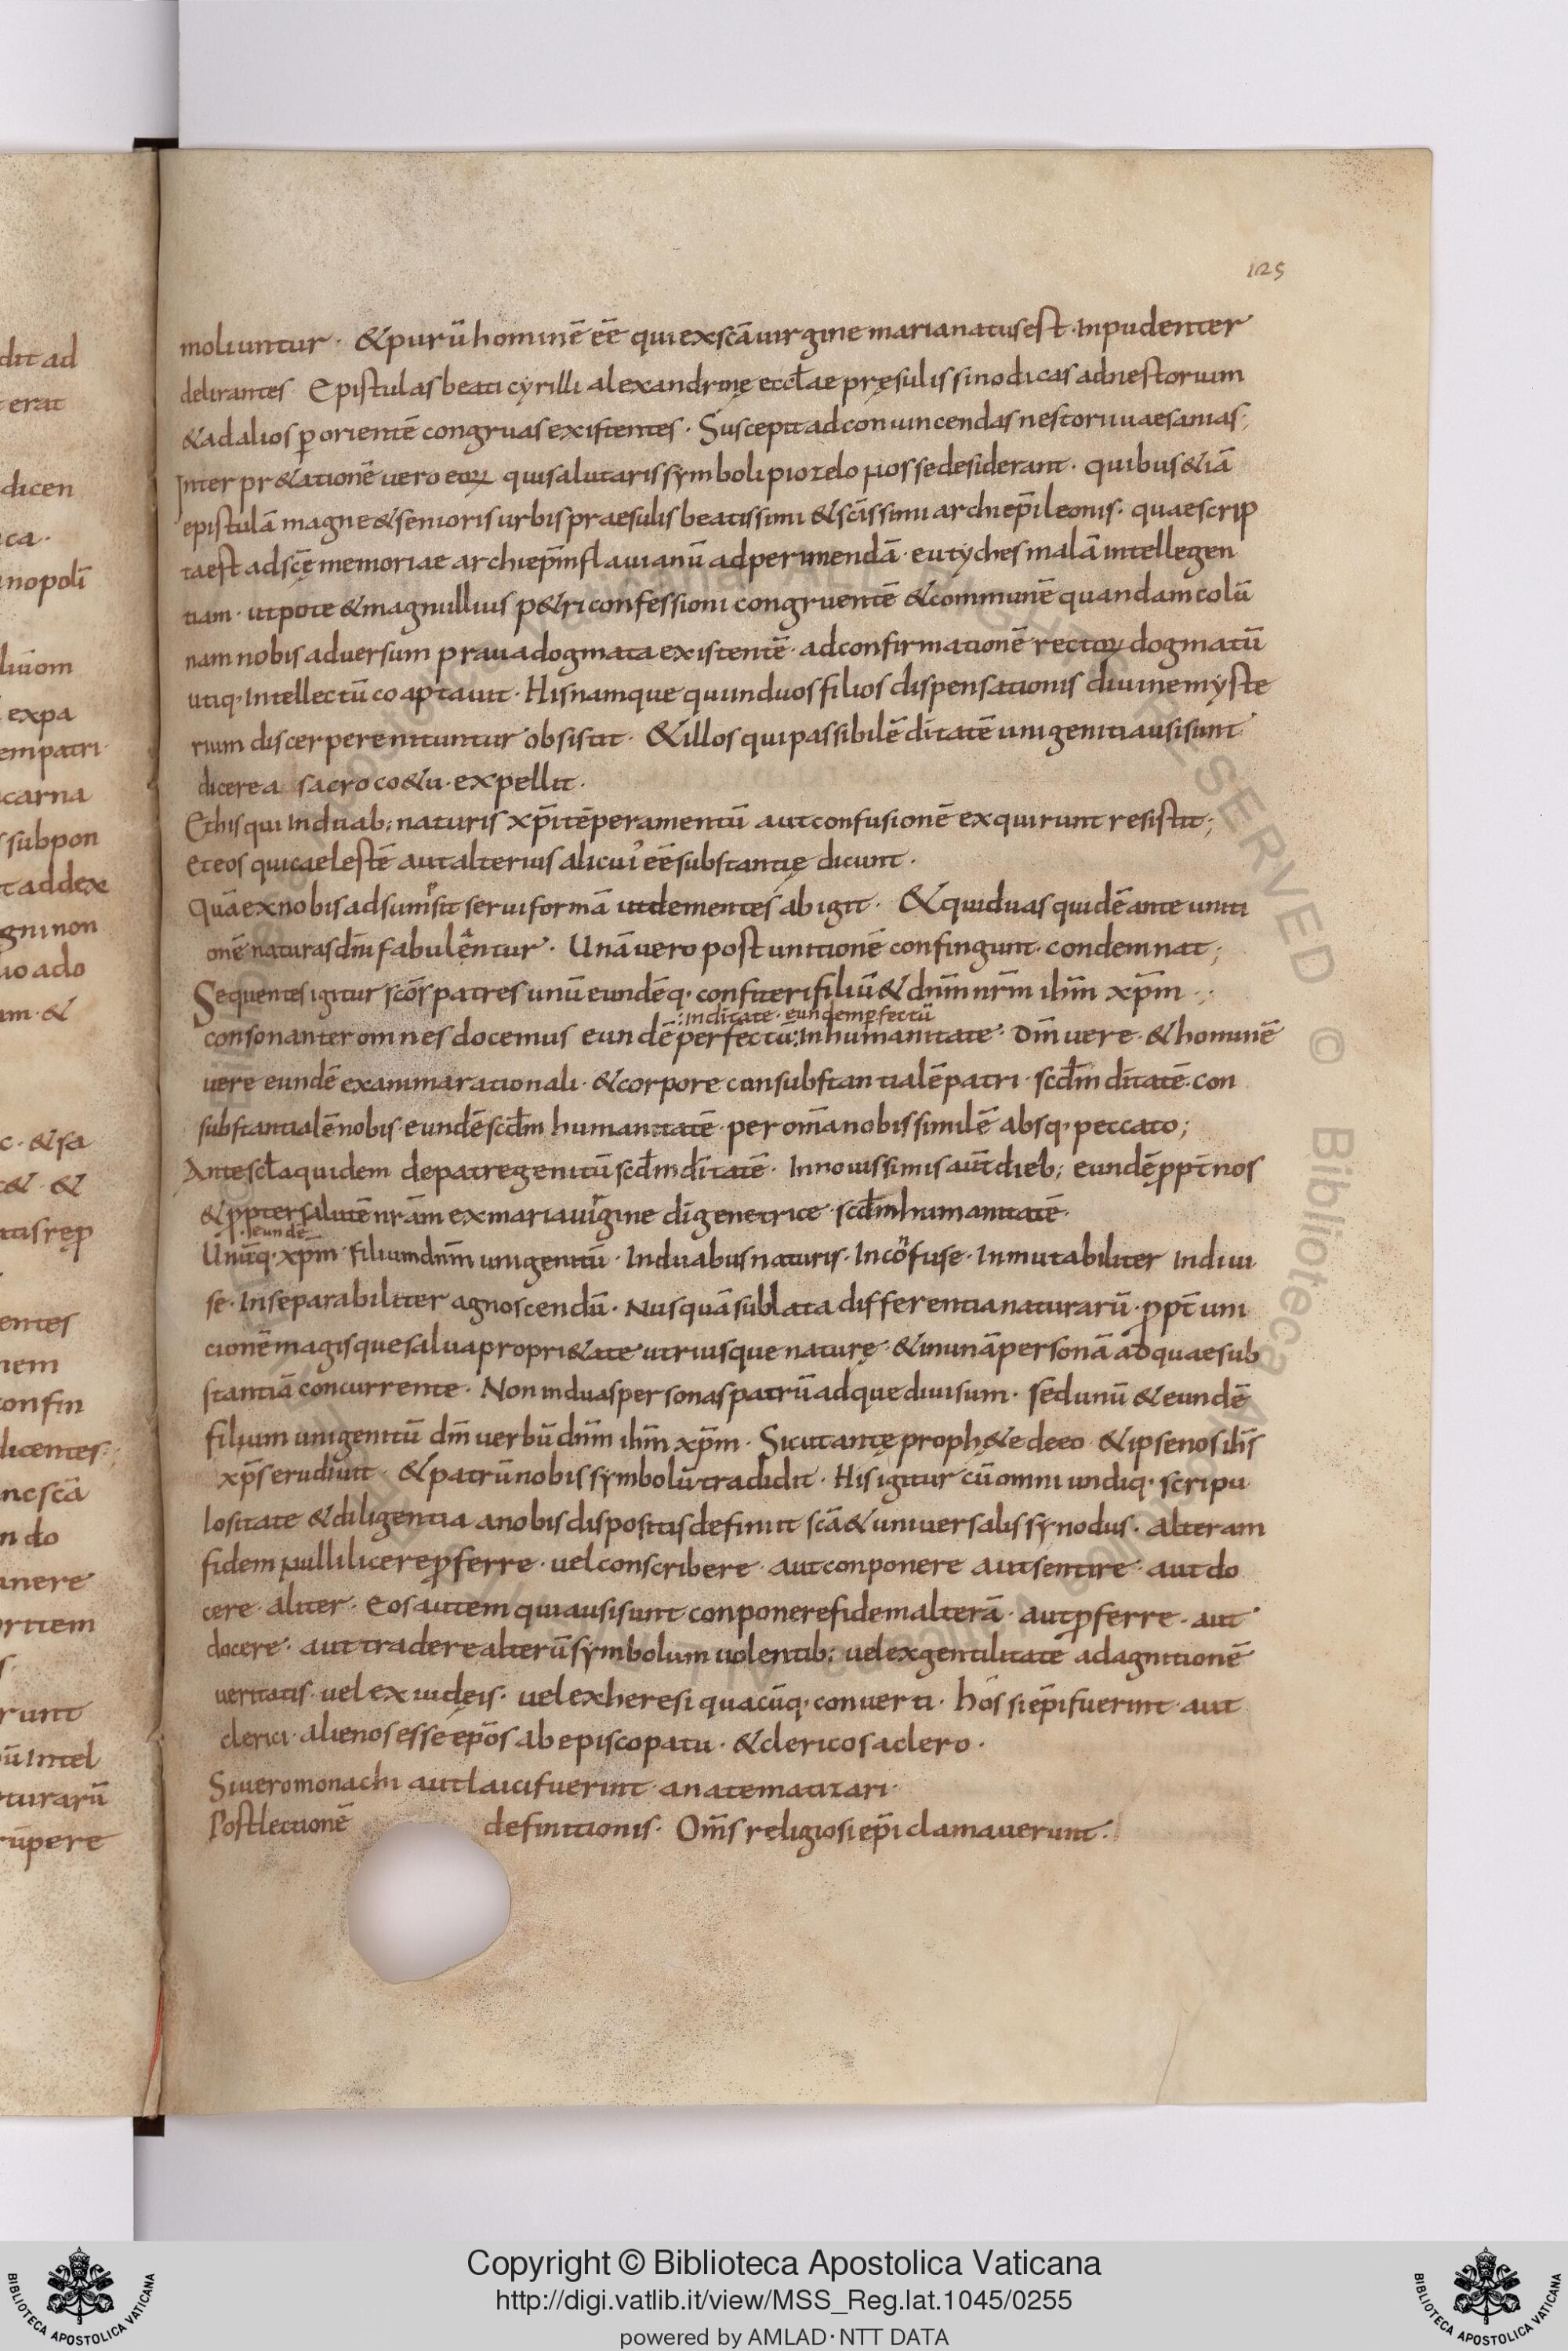 125
moliuntur · & purū hominē ēē qui ex scā uirgine maria natus est · inpudenter
delirantes · Epistulas beati cyrilli alexandrinę eccłae pręsulis sinodicas ad nestorium
& ad alios ꝑ orientē congruas existentes · Suscepit ad conuincendas nestorii uaesanias ;
Inter pr&ationē uero eoꝝ qui salutaris symboli pio zelo nosse desiderant · quibus &iā
epistulā magne & senioris urbis praesulis beatissimi & scīssimi archiep̄i leonis · quae scrip
ta est ad scę̄ memoriae archiep̄m flauianū ad perimendā · eutyches malā intellegen
tiam · utpote & magnullius p&ri confessioni congruentē & communē quandam colū
nam nobis aduersum praua dogmata existentē · ad confirmationē rectoꝝ dogmatū
utiq· Intellectū coaptauit · His namque qui in duos filios dispensationis diuine myste
rium discerpere nituntur obsistit · & illos qui passibilē ditatē unigeniti ausi sunt
dicere a sacro co&u · expellit ·
Et his qui In duab; naturis xp̄i tēperamentū aut confusionē exquirunt resistit ;
et eos qui caelestē aut alterius alicui' ēē substantię dicunt ·
quā ex nobis adsumsit serui formā ut dementes abigit · & qui duas quidē ante uniti
onē naturas dn̄i fabulentur · Unā uero post unitionē confingunt · condemnat ;
Sequentes igitur scōs patres unū eundēq· confiteri filiū & dn̄m nr̄m ihm̄ xp̄m ·;
:In ditate · eundem ꝑfectū
consonanter omnes docemus eundē perfectū: In humanitate · Dm̄ uere · & hominē
uere eundē ex anima rationali · & corpore consubstantialē patri · scdm̄ ditatē · con
substantialē nobis · eundē scdm̄ humanitatē · per om̄a nobis similē absq· peccato ;
Ante scła quidem de patre genitū scdm̄ ditatē · In nouissimis aūt dieb; eundē ppt̄ nos
& ppter salutē nrām ex maria uirgine di genetrice · scdm̄ humanitatē ·
·/eundē
Unūq· xp̄m · filium dnm̄ unigenitū · In duabus naturis · Incōfuse · Inmutabiliter Indiui
se · Inseparabiliter agnoscendū · Nusquā sublata differentia naturarū · ppt̄ uni
cionē magisque salua propri&ate utriusque naturę · & in unā personā adquae sub
stantiā concurrente · Non in duas personas patrū adque diuisum · sed unū & eundē
filium unigenitū dm̄ uerbū dnm̄ ihm̄ xp̄m · Sicut antę proph&e de eo · & ipse nos ihs̄
xp̄s erudiuit · & patrū nobis symbolū tradidit · His igitur cū omni undiq· scripu
lositate & diligentia a nobis dispositis definiit scā & uniuersalis synodus · alteram
fidem nulli licere ꝓferre · uel conscribere · aut conponere aut sentire · aut do
cere · aliter · Eos autem qui ausi sunt conponere fidem alterā · aut ꝓferre · aut
docere · aut tradere alterū symbolum uolentib; uel ex gentilitate ad agnitionē
ueritatis · uel ex iudęis · uel ex heresi quacūq· conuerti · hos si ep̄i fuerint · aut
clerici · alienos esse ep̄os ab episcopatu · & clericos a clero ·
Si uero monachi aut laici fuerint · anatematizari ·
Post lectionē definitionis · Om̄s religiosi ep̄i clamauerunt ·
Copyright © Biblioteca Apostolica Vaticana
http://digi.vatlib.it/view/MSS_Reg.lat.1045/0255
powered by AMLAD · NTT DATA
BIBLIOTECA APOSTOLICA VATICANA
BIBLIOTECA APOSTOLICA VATICANA